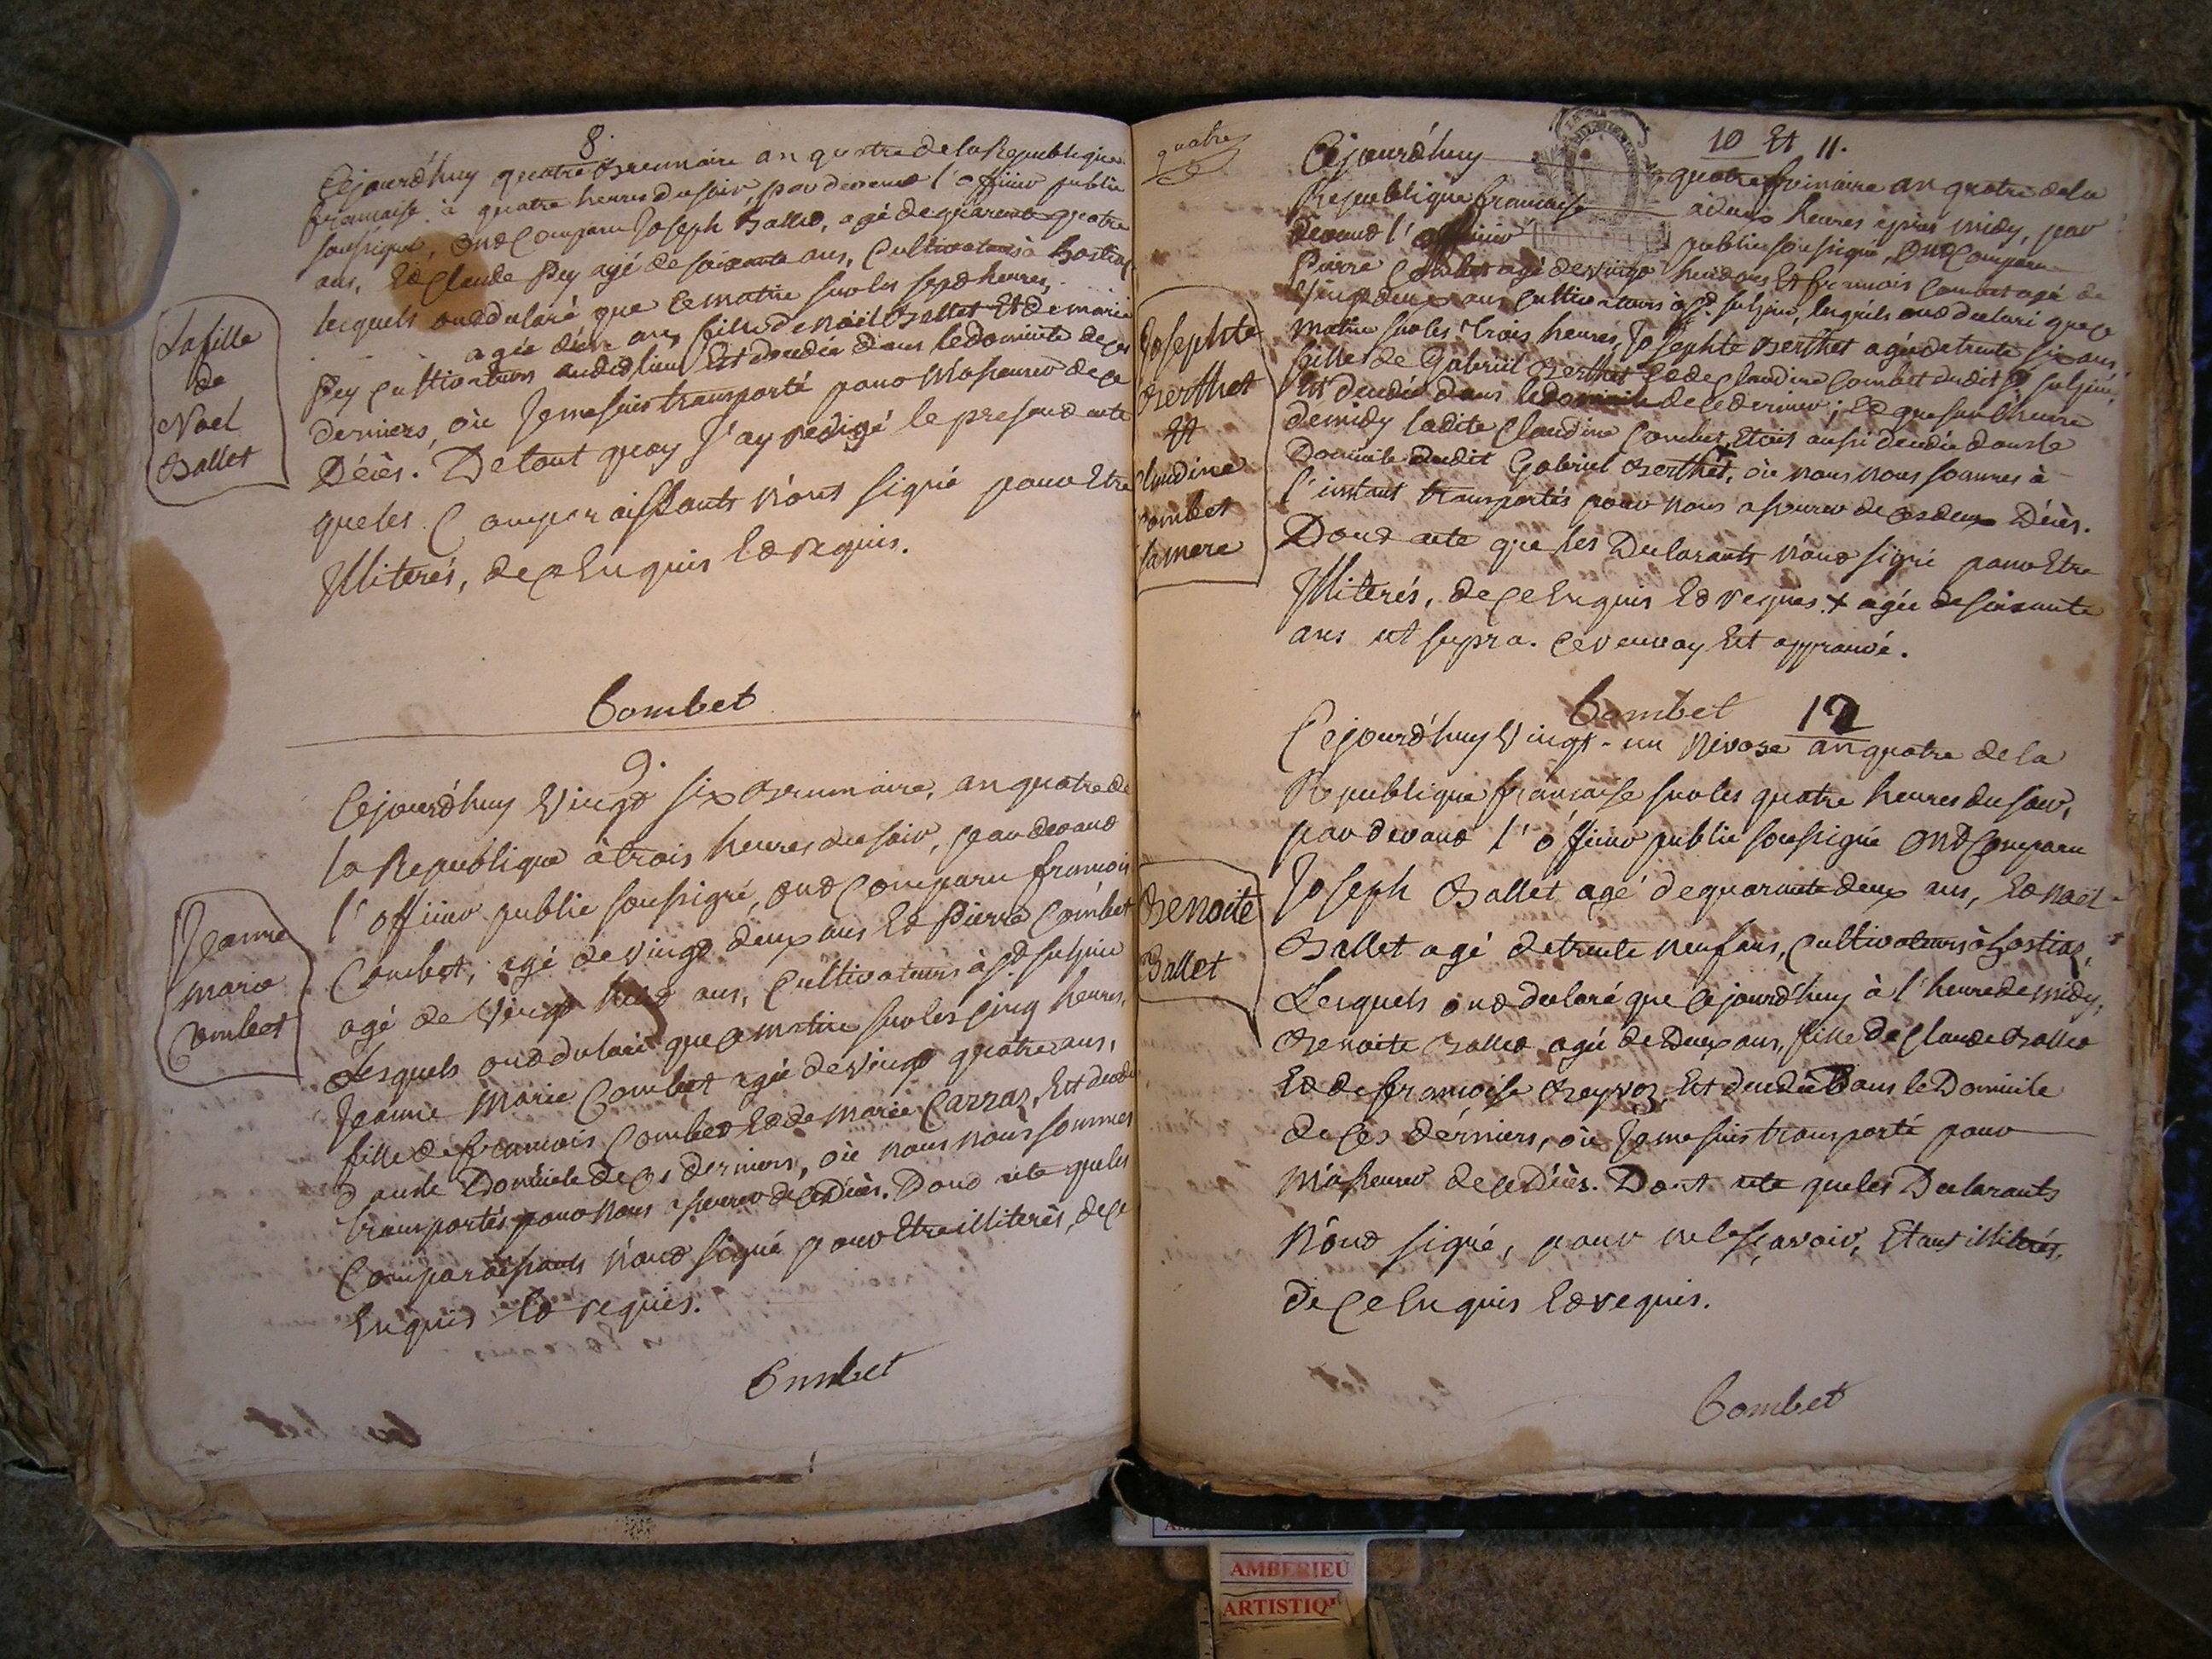 8.
Cejourd'huy quatre Brumaire an quatre de la Republique
francaise à quatre heures du soir, par devant l'officier public
soussigné, ont comparu Joseph Ballet, agé de quarente quatre
ans, Et Claude Pey agé de soixante ans, Cultivateurs à hostiaz
lesquels ont declaré que ce matin sur les sept heures,
agée d'un an, fille de Noël Ballet Et de marie
Pey cultivateurs audit lieu Est decedée dans le domicile de ces
derniers, où Je me suis transporté pour M'assurer de ce
Décès. De tout quoy J'ay redigé le present acte
que les Comparaissants n'ont signé pour Etre
Illiterés, de ce Enquis Et requis.
Combet
La fille
de
Noel
Ballet
9.
Cejourd'huy Vingt six Brumaire, an quatre de
la Republique à trois heures du soir, par devant
l'officier public soussigné, ont comparu francois
Combet, agé de vingt deux ans Et Pierre Combet
agé de Vingt huit ans, Cultivateurs à St. sulpice
Lesquels ont declaré que ce matin sur les cinq heures,
Jeanne Marie Combet agée de vingt quatre ans,
fille de francois Combet Et de Marie Carraz, Est decedée
dans le Domicile de ces derniers, où nous nous sommes
transportés pour nous assurer de ce Décès. Dont acte que les
Comparaissants n'ont signé pour Etre illiterés, de ce
Enquis Et requis.
Combet
Jeanne
marie
Combet
quatre
10 Et 11.
Cejourd'huy quatre frimaire an quatre de la
Republique francaise à deux heures après midy, par
devant l'officier public soussigné, ont comparu
Pierre Combet agé de vingt huit ans Et francois Combet agé de
Vingt deux ans cultivateurs à St. sulpice, lesquels ont declaré que ce
matin sur les trois heures, Josephte Berthet agée de trente six ans,
fille de Gabriel Berthet Et de Claudine Combet dudit St. sulpice,
Est decedée dans le domicile de ce dernier; Et que sur l'heure
de midy ladite Claudine Combet, Etoit aussi decedée dans le
Domicile dudit Gabriel Berthet, où nous nous sommes à
l'instant transportés pour nous assurer de ces deux Décès.
Dont acte que les Declarants n'ont signé pour Etre
Illiterés, de ce Enquis Et requis. + agée de soixante
ans ut supra. Ce renvoy Est approuvé.
Combet
Josephte
Berthet
Et
Claudine
Combet
sa mere
12
Cejourd'huy Vingt-un Nivose an quatre de la
Republique francaise sur les quatre heures du soir,
par devant l'officier public soussigné ont comparu
Joseph Ballet agé de quarante deux ans, Et Noël
Ballet agé de trente neuf ans, cultivateurs à hostiaz,
Lesquels ont declaré que cejourd'huy à l'heure de midy,
Benoite Ballet agée de Deux ans, fille de Claude Ballet
Et de francoise Reyvoz Est decedée Dans le Domicile
de ces derniers, où Je me suis transporté pour
M'assurer de ce Décès. Dont acte que les Declarants
N'ont signé, pour ne le sçavoir, Etant illiterés,
de ce Enquis Et requis.
Combet
Benoite
Ballet
AMBERIEU
ARTISTIQ